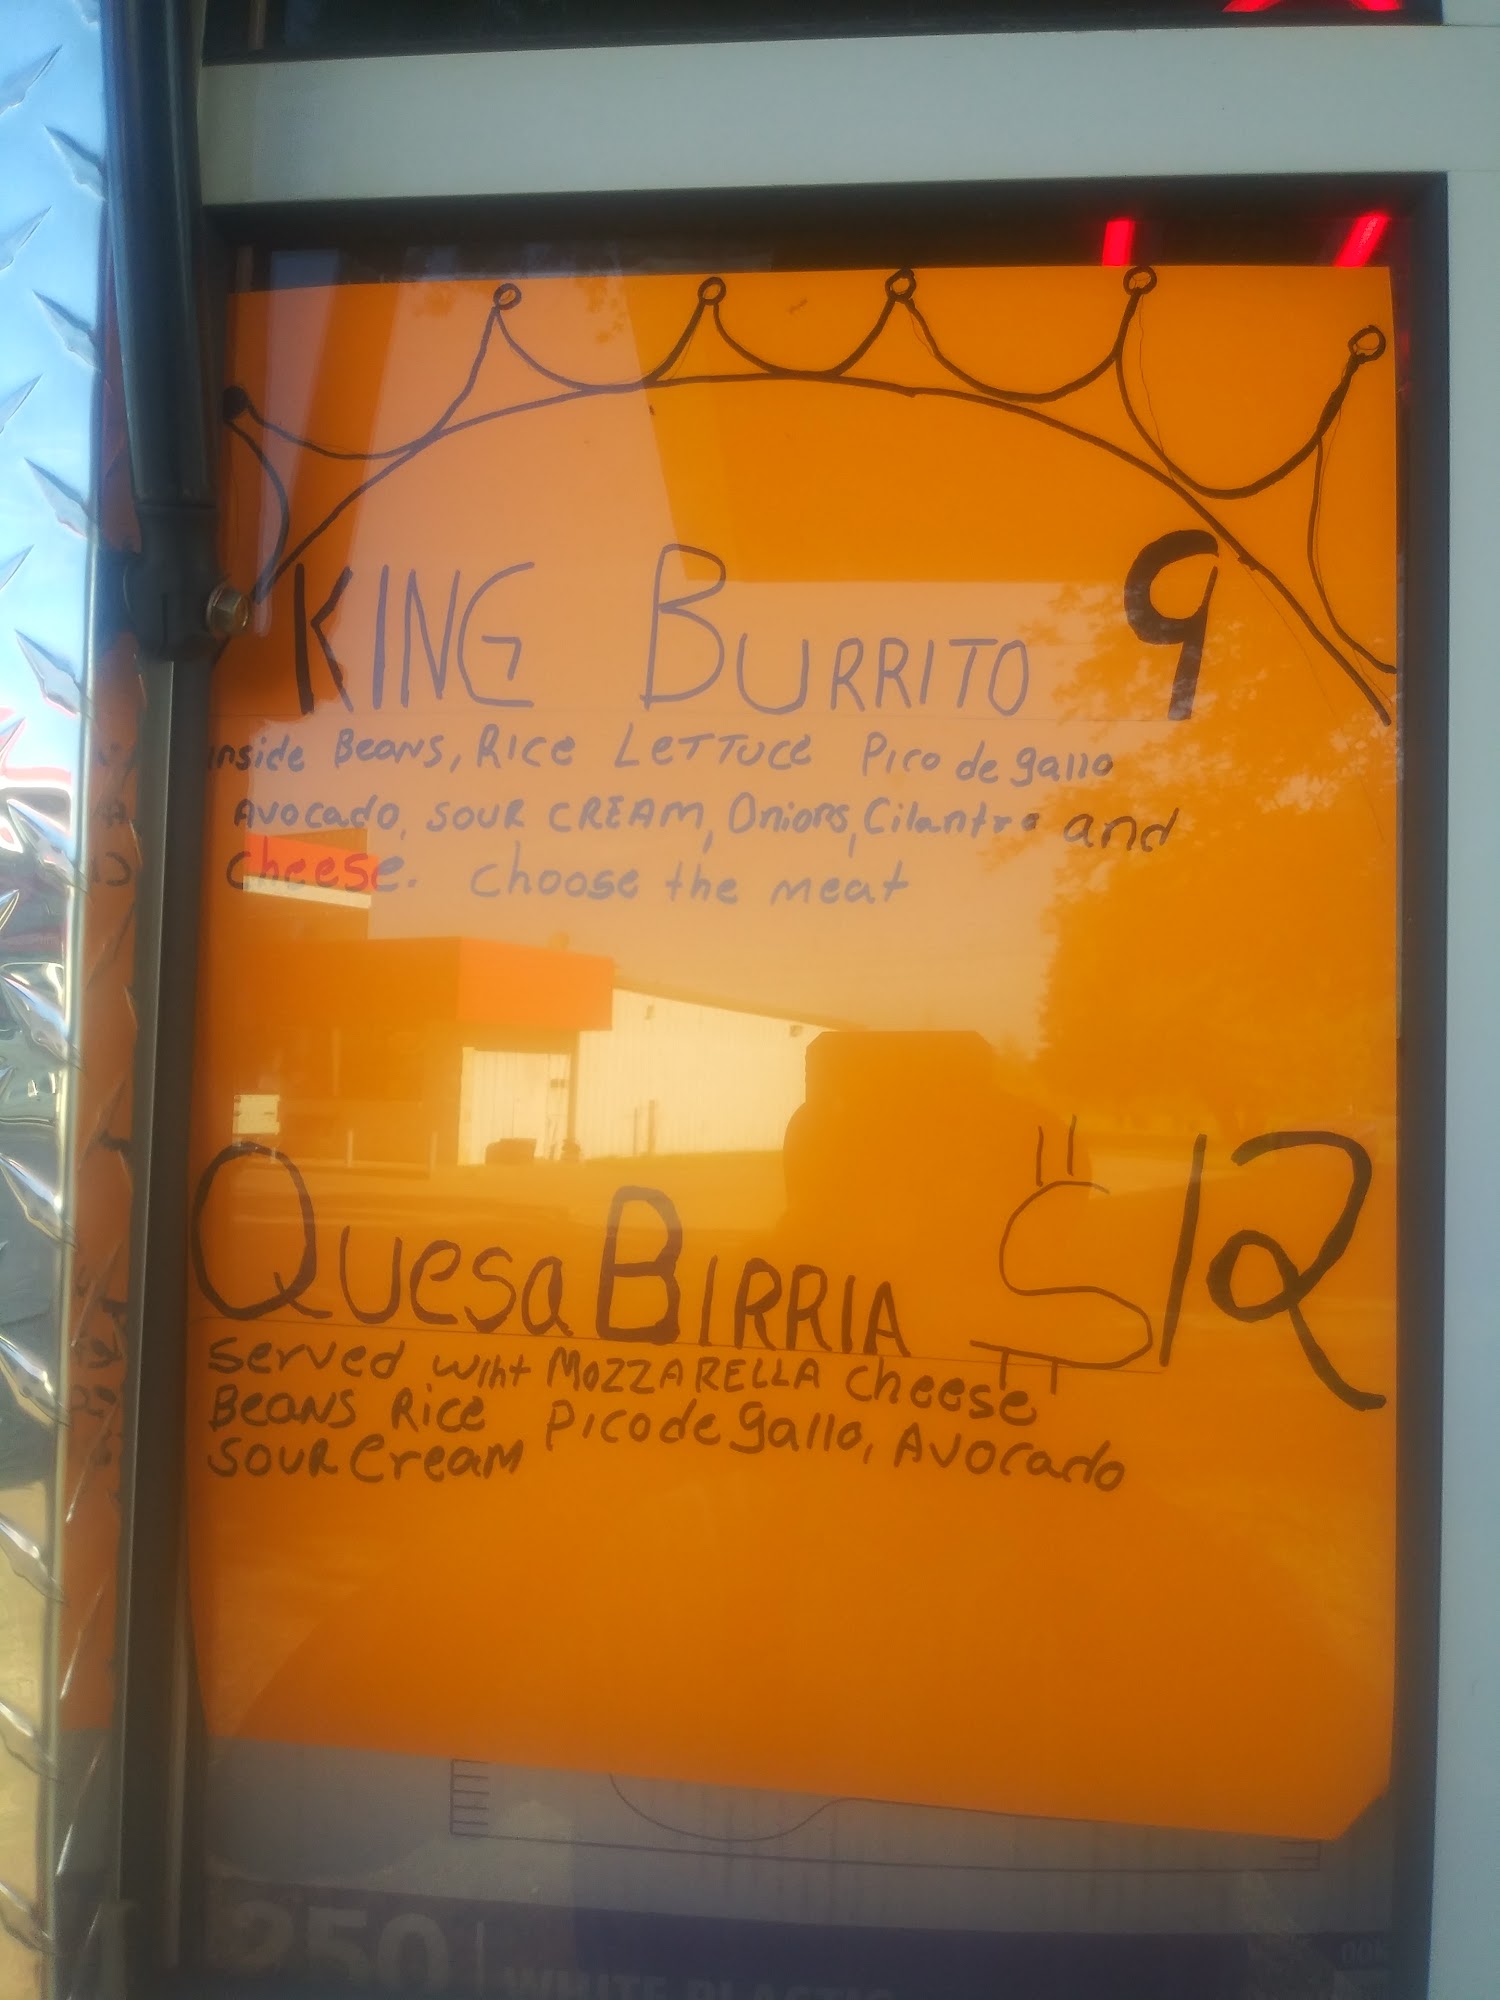 KING BURRITO 9
inside Beans, Rice Lettuce Pico de gallo
Avocado, sour cream, Onions, Cilantro and
cheese. choose the meat
QuesaBirria $12
served wiht Mozzarella cheese
Beans Rice Pico de gallo, Avocado
sour cream
250 WHITE PLASTIC